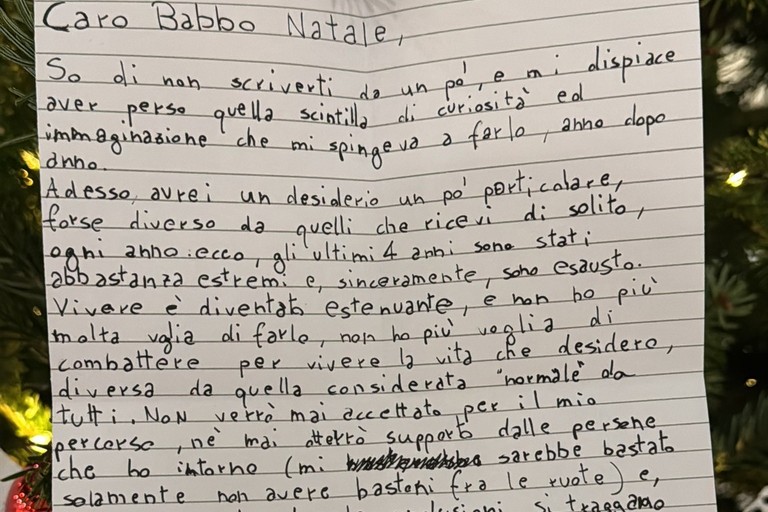 Caro Babbo Natale,
So di non scriverti da un po', e mi dispiace
aver perso quella scintilla di curiosità ed
immaginazione che mi spingeva a farlo, anno dopo
anno.
Adesso, avrei un desiderio un po' particolare,
forse diverso da quelli che ricevi di solito,
ogni anno: ecco, gli ultimi 4 anni sono stati
abbastanza estremi e, sinceramente, sono esausto.
Vivere è diventato estenuante, e non ho più
molta voglia di farlo, non ho più voglia di
combattere per vivere la vita che desidero,
diversa da quella considerata "normale" da
tutti. Non verrò mai accettato per il mio
percorso, nè mai otterrò supporto dalle persone
che ho intorno (mi sarebbe bastato
solamente non avere bastoni fra le ruote) e,
si traggano